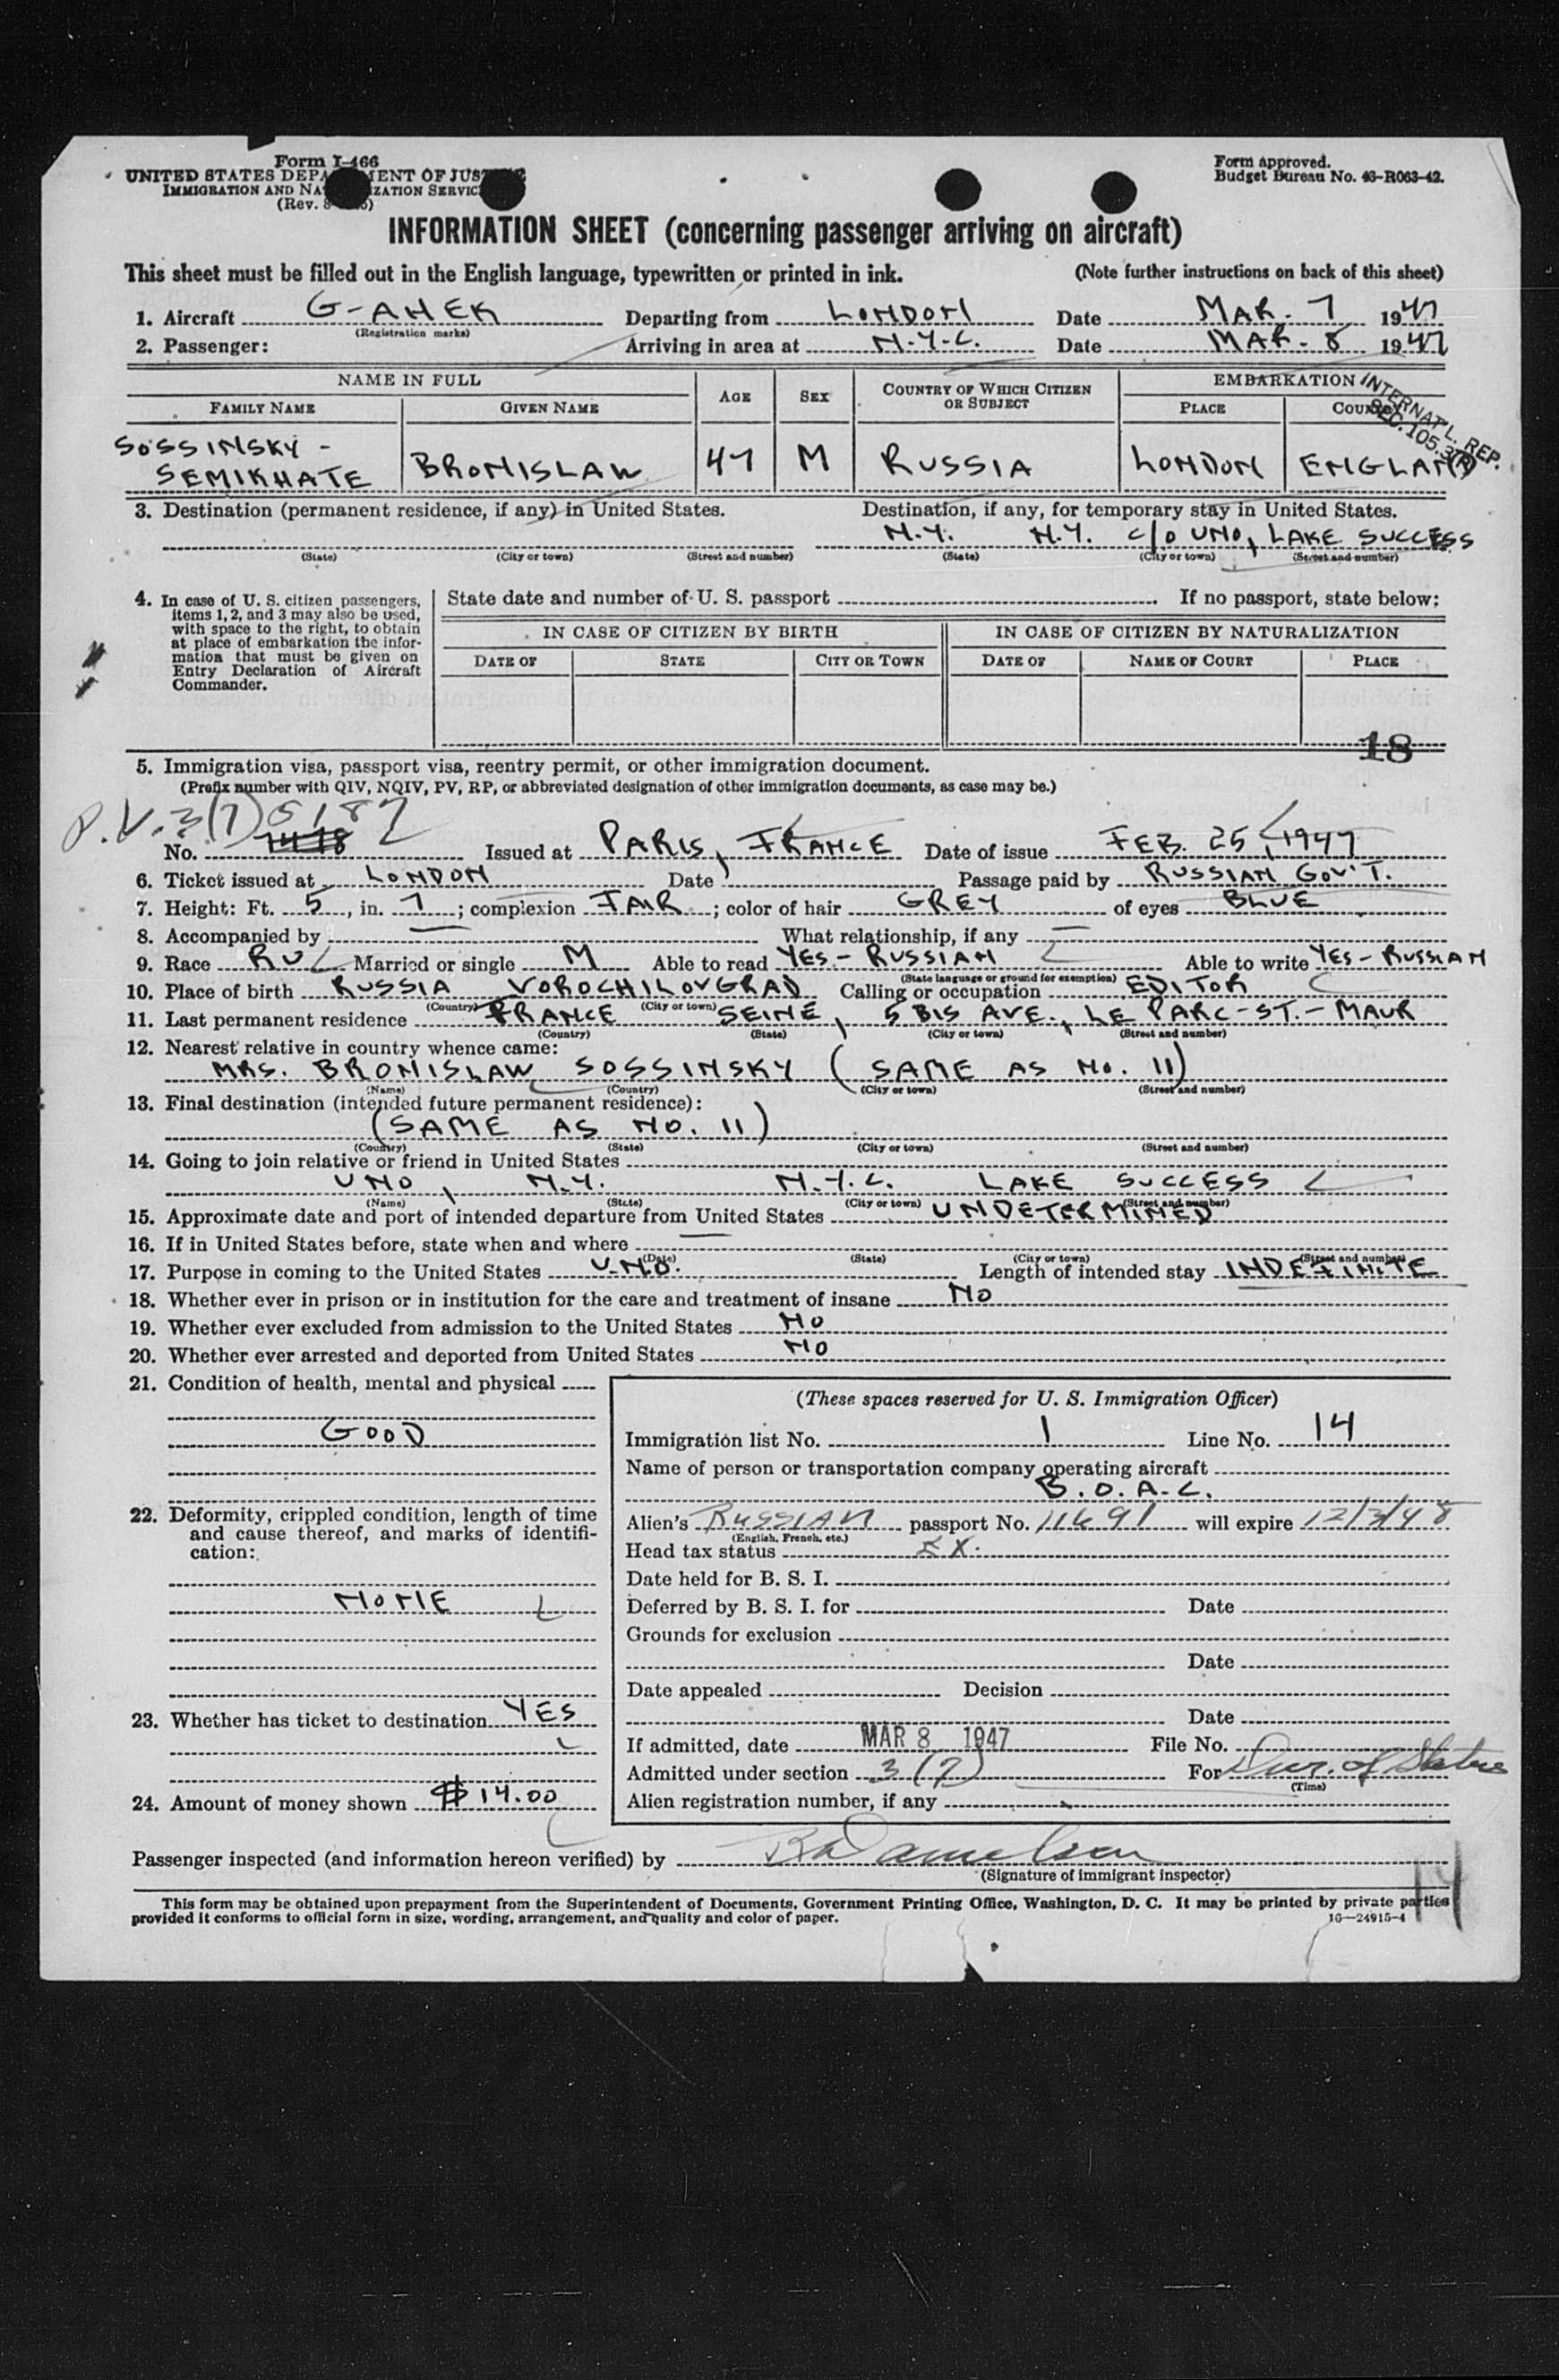 Form I-466
UNITED STATES DEPARTMENT OF JUSTICE
IMMIGRATION AND NATURALIZATION SERVICE
(Rev.
Form approved.
Budget Bureau No. 43-R063-42.
INFORMATION SHEET (concerning passenger arriving on aircraft)
This sheet must be filled out in the English language, typewritten or printed in ink. (Note further instructions on back of this sheet)
1. Aircraft G-AHEK Departing from LONDON Date MAR. 7 1947
(Registration marks)
2. Passenger: Arriving in area at N.Y.C. Date MAR. 8 1947
NAME IN FULL AGE SEX COUNTRY OF WHICH CITIZEN OR SUBJECT EMBARKATION
FAMILY NAME GIVEN NAME PLACE COUNTRY
INTERNAT'L. REP.
SEC. 105.3(A)
SOSSINSKY -
SEMIKHATE BRONISLAW 47 M RUSSIA LONDON ENGLAND
3. Destination (permanent residence, if any) in United States. Destination, if any, for temporary stay in United States.
N.Y. N.Y. c/o UNO, LAKE SUCCESS
(State) (City or town) (Street and number) (State) (City or town) (Street and number)
4. In case of U. S. citizen passengers, items 1, 2, and 3 may also be used, with space to the right, to obtain at place of embarkation the information that must be given on Entry Declaration of Aircraft Commander.
State date and number of U. S. passport If no passport, state below:
IN CASE OF CITIZEN BY BIRTH IN CASE OF CITIZEN BY NATURALIZATION
DATE OF STATE CITY OR TOWN DATE OF NAME OF COURT PLACE
18
5. Immigration visa, passport visa, reentry permit, or other immigration document.
(Prefix number with QIV, NQIV, PV, RP, or abbreviated designation of other immigration documents, as case may be.)
P.V. 3(7) 5187
No. 1418 Issued at PARIS, FRANCE Date of issue FEB. 25, 1947
6. Ticket issued at LONDON Date Passage paid by RUSSIAN GOV'T.
7. Height: Ft. 5, in. 7; complexion FAIR; color of hair GREY of eyes BLUE
8. Accompanied by — What relationship, if any —
9. Race RU Married or single M Able to read YES - RUSSIAN Able to write YES - RUSSIAN
(State language or ground for exemption)
10. Place of birth RUSSIA VOROCHILOVGRAD Calling or occupation EDITOR
(Country) (City or town)
11. Last permanent residence FRANCE SEINE, 5 BIS AVE., LE PARC-ST.-MAUR
(Country) (State) (City or town) (Street and number)
12. Nearest relative in country whence came:
MRS. BRONISLAW SOSSINSKY (SAME AS NO. 11)
(Name) (Country) (City or town) (Street and number)
13. Final destination (intended future permanent residence):
(SAME AS NO. 11)
(Country) (State) (City or town) (Street and number)
14. Going to join relative or friend in United States
UNO, N.Y. N.Y.C. LAKE SUCCESS
(Name) (State) (City or town) (Street and number)
15. Approximate date and port of intended departure from United States UNDETERMINED
16. If in United States before, state when and where —
(Date) (State) (City or town) (Street and number)
17. Purpose in coming to the United States U.N.O. Length of intended stay INDEFINITE
18. Whether ever in prison or in institution for the care and treatment of insane NO
19. Whether ever excluded from admission to the United States NO
20. Whether ever arrested and deported from United States NO
21. Condition of health, mental and physical
GOOD
22. Deformity, crippled condition, length of time and cause thereof, and marks of identification:
NONE
23. Whether has ticket to destination YES
24. Amount of money shown $14.00
(These spaces reserved for U. S. Immigration Officer)
Immigration list No. 1 Line No. 14
Name of person or transportation company operating aircraft
B.O.A.C.
Alien's RUSSIAN passport No. 11691 will expire 12/3/48
(English, French, etc.)
Head tax status EX.
Date held for B. S. I.
Deferred by B. S. I. for Date
Grounds for exclusion
Date
Date appealed Decision
Date
If admitted, date MAR 8 1947 File No.
Admitted under section 3(7) For Dur. of Status
(Time)
Alien registration number, if any
Passenger inspected (and information hereon verified) by
(Signature of immigrant inspector)
14
This form may be obtained upon prepayment from the Superintendent of Documents, Government Printing Office, Washington, D. C. It may be printed by private parties
provided it conforms to official form in size, wording, arrangement, and quality and color of paper. 16—24915-4